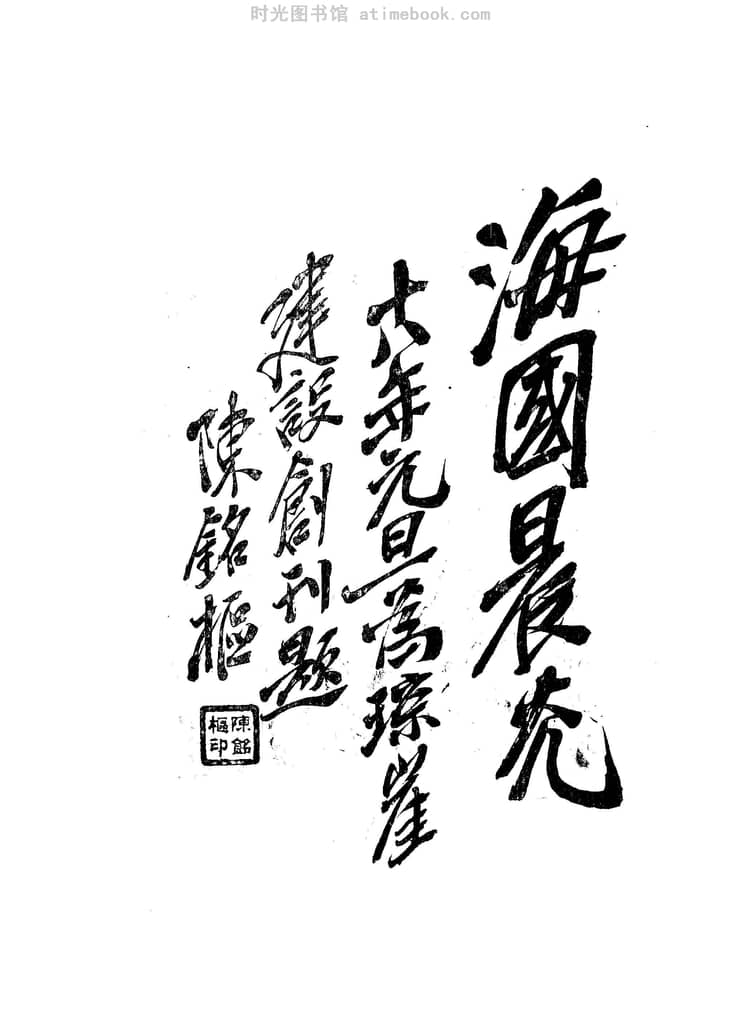 时光图书馆 atimebook.com
海國晨光
十八年元旦為琼崖
建設創刊題
陳銘樞
陳銘
樞印